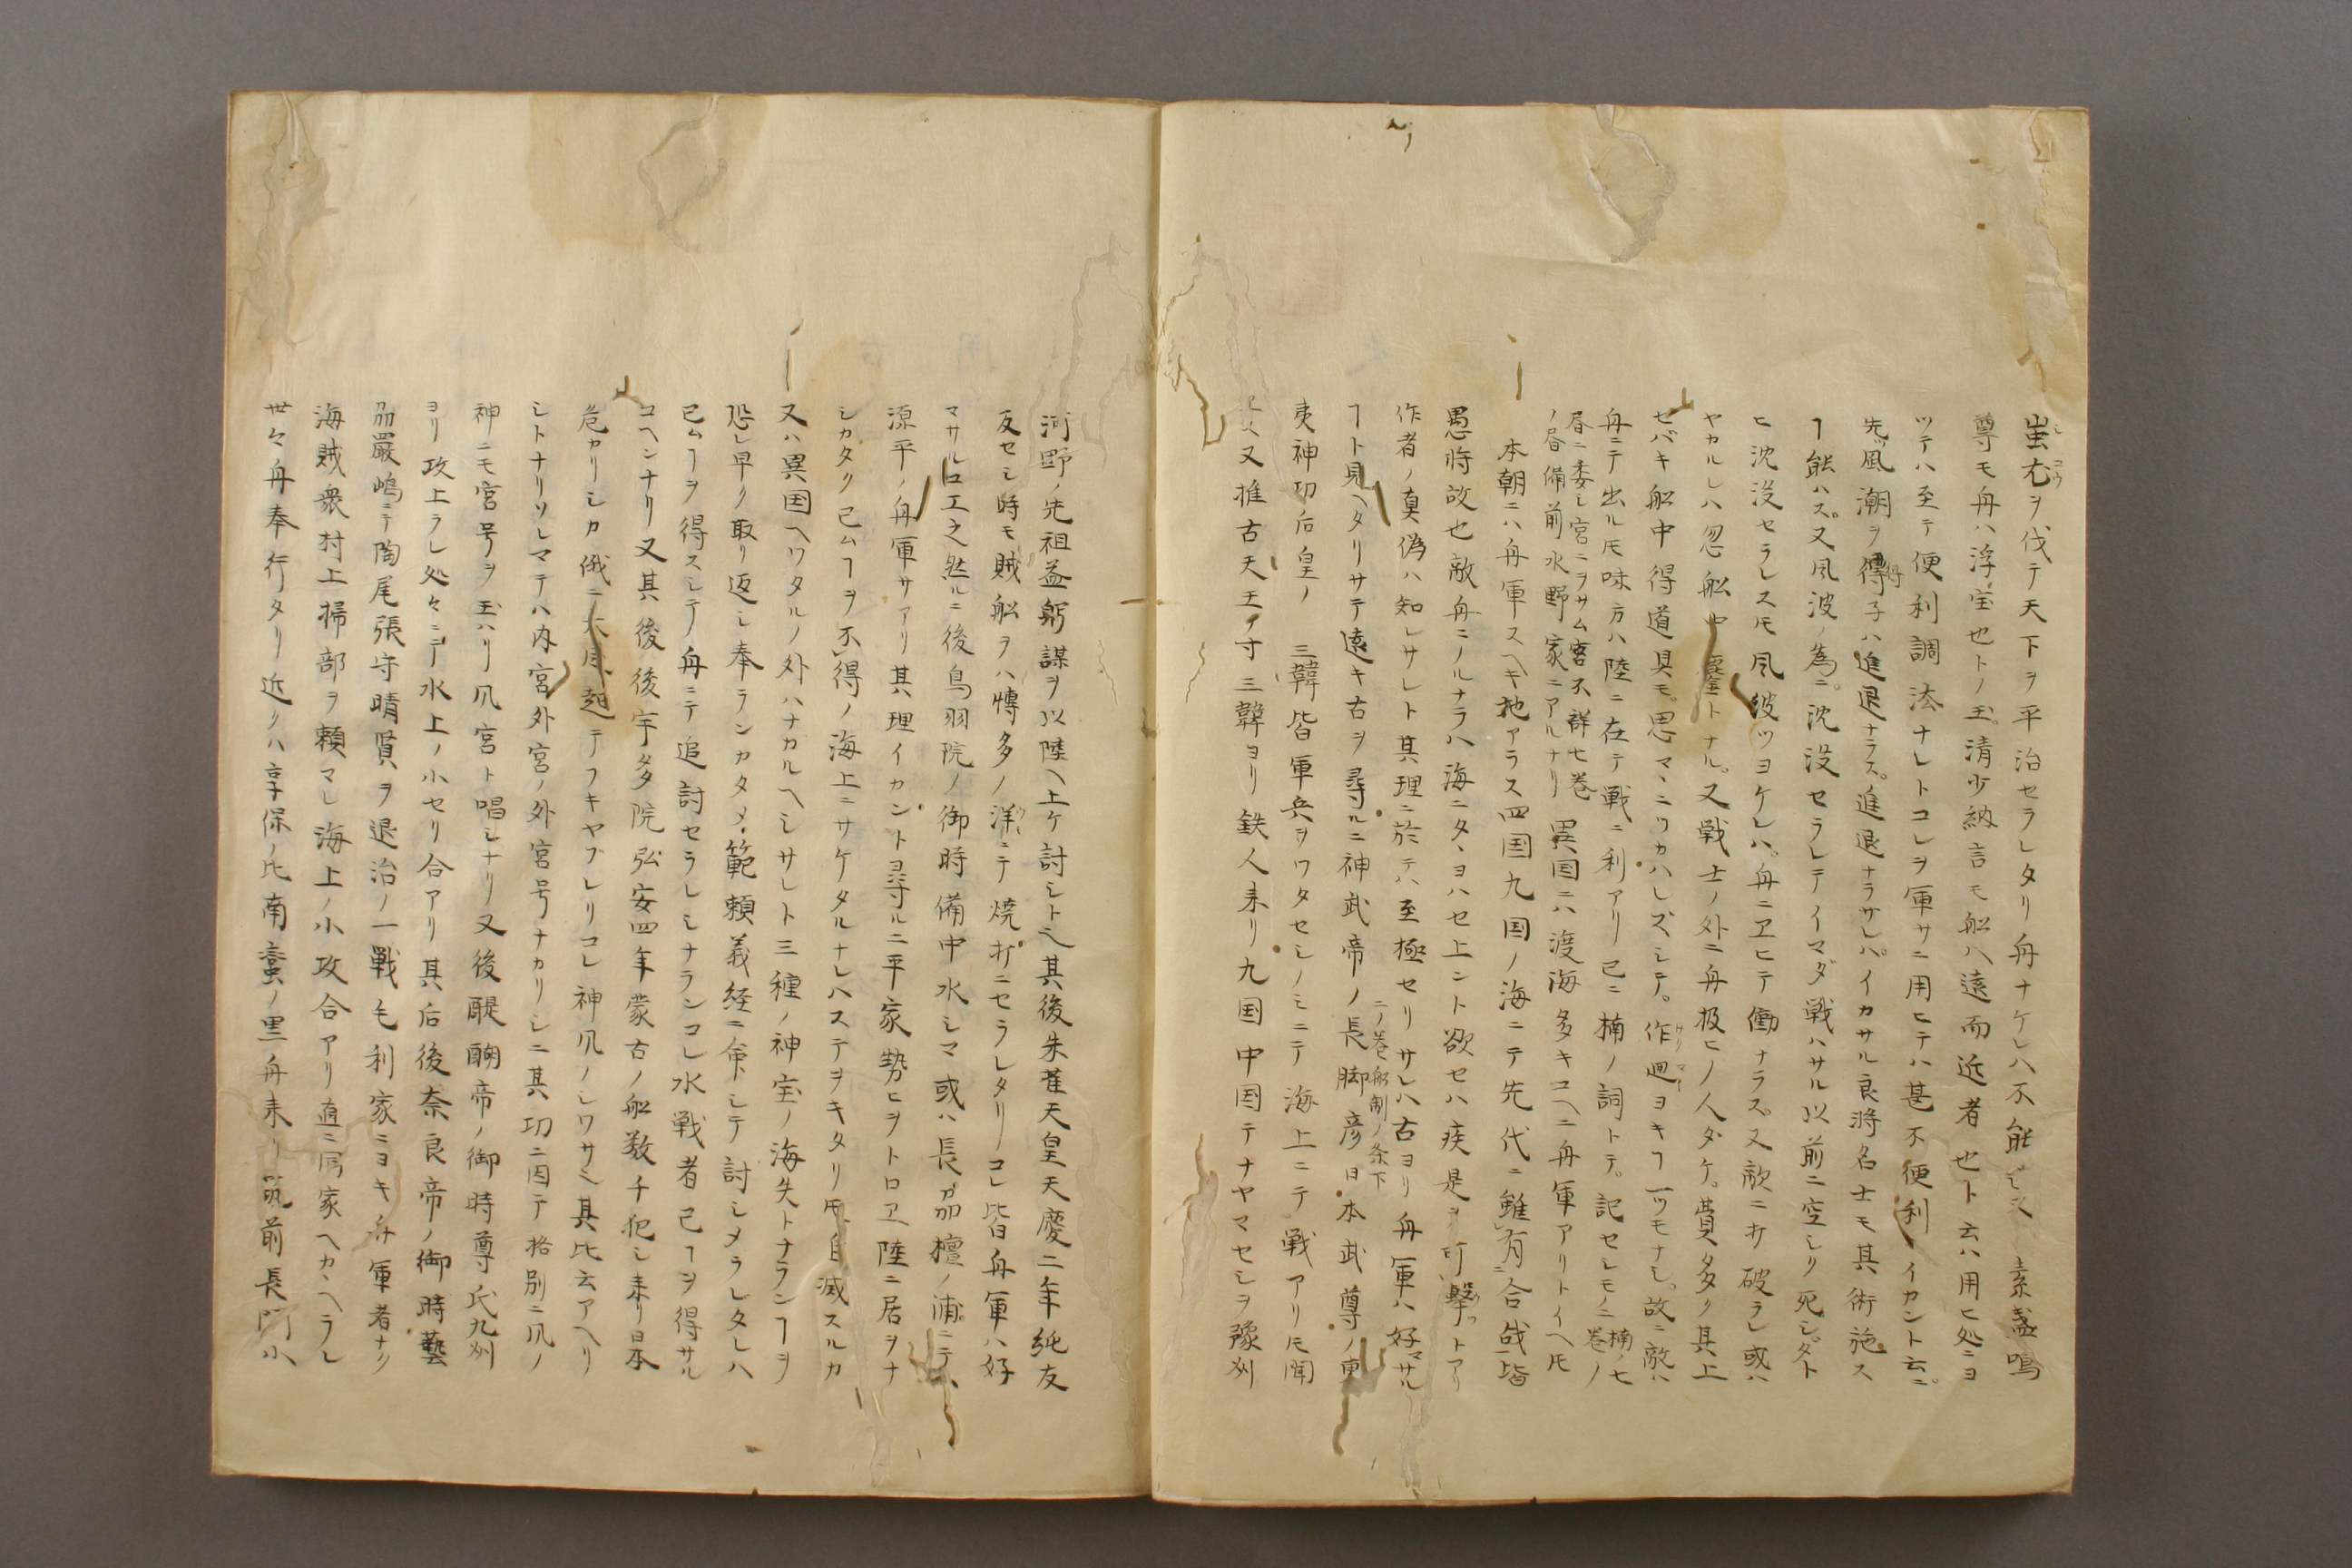 蚩尤ヲ伐テ天下ヲ平治セラレタリ舟ナケレハ不能 素盞嗚
尊モ舟ハ浮宝也トノ玉清少納言モ船ハ遠而近者也ト云ハ用ヒ処ニヨ
ツテハ至テ便利調法ナレトコレヲ軍サニ用ヒテハ甚不便利イカント云ニ
先ツ風潮ヲ得子ハ進退ナラス進退ナラサレハイカサル良將名士モ其術施ス
ヿ能ハス又風波ノ為ニ沈没セラレテイマダ戦ハサル以前ニ空シク死シダト
ヒ沈没セラレスモ風波ツヨケレハ舟ニヱヒテ働ナラス又敵ニ打破ラレ或ハ
ヤカルレハ忽船中 トナル又戰士ノ外ニ舟扱ヒノ人ダケ費多ク其上
セバキ船中得道具モ思マヽニツカハレズシテ作廻ヨキヿ一ツモナシ故ニ敵ハ
舟ニテ出ルモ味方ハ陸ニ在テ戰ニ利アリ已ニ楠ノ詞トテ記セシモノニ楠ノ七巻ノ
昼ニ委シ宮ニヲサム客不群七巻
ノ昼備前水野家ニアルナリ 異国ニハ渡海多キユヘニ舟軍アリトイヘ𪜈
本朝ニハ舟軍スヘキ地アラス四国九国ノ海ニテ先代ニ雖有合戦皆
愚将故也敵舟ニノルナラハ海ニタヽヨハセ上ント欲セハ疾是ヲ可撃トアリ
作者ノ真偽ハ知レサレト其理ニ於テハ至極セリサレハ古ヨリ舟軍ハ好マサル
ヿト見ヘタリサテ遠キ古ヲ尋ルニ神武帝ノ長脚彦日本武尊ノ東
二ノ巻船制ノ条下
夷神功后皇ノ 三韓皆軍兵ヲワタセシノミニテ海上ニテ戦アリ𪜈聞
又推古天王ノ寸三韓ヨリ鉄人来リ九国中国テナヤマセシヲ豫刕
河野ノ先祖益躬謀ヲ以陸ヘ上ケ討シト也其後朱雀天皇天慶二年純友
反セシ時モ賊船ヲハ博多ノ洋ニテ焼打ニセラレタリコレ皆舟軍ハ好
マサル口工之然ルニ後鳥羽院ノ御時備中水シマ或ハ長州檀ノ浦ニテハ
源平ノ舟軍サアリ其理イカント尋ルニ平家勢ヒヲトロヱ陸ニ居ヲナ
シカタク已ムヿヲ不得ノ海上ニサケタルナレハステヲキタリ𪜈自滅スルカ
又ハ異国ヘワタルノ外ハナカルヘシサレト三種ノ神宝ノ海失トナランヿヲ
恐レ早ク取リ返シ奉ランカタメ範頼義経ニ命シテ討シメラレタレハ
已ムヿヲ得スシテ舟ニテ追討セラレシナランコレ水戦者已ヿヲ得サル
ユヘンナリ又其後後宇多院弘安四年蒙古ノ船数千犯シ来リ日本
危カリシカ俄ニ大風起テフキヤブレリコレ神風ノシワサ也其比云アヘリ
シトナリソレマテハ内宮外宮ノ外宮号ナカリシニ其功ニ因テ格別ニ風ノ
神ニモ宮号ヲ玉ハリ風宮ト唱シナリ又後醍醐帝ノ御時尊氏九刕
ヨリ攻上ラレ処々ニテ水上ノ小セリ合アリ其后後奈良帝ノ御時藝
刕嚴嶋ニテ陶尾張守晴賢ヲ退治ノ一戰毛利家ニヨキ舟軍者ナク
海賊衆村上掃部ヲ頼マレ海上ノ小攻合アリ直ニ同家ヘカヽヘラレ
世々舟奉行タリ近クハ享保ノ比南蛮ノ黒舟来リ筑前長門小